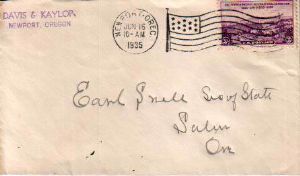 DAVIS & KAYLOR
NEWPORT, OREGON
NEWPORT, OREG.
JUN 16
10-AM
1935
Earl Snell Sec of State
Salem
Ore